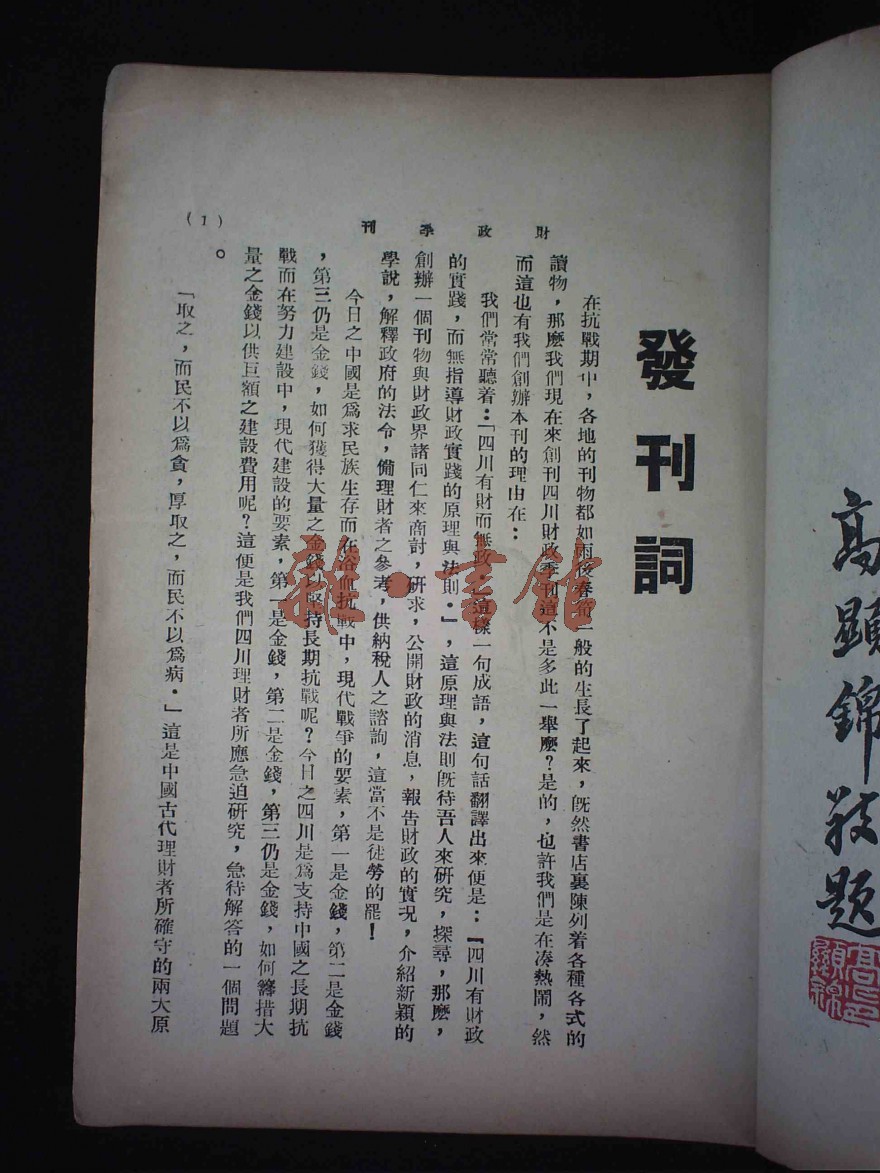 高顯錦敬題
財政季刊
發刊詞
在抗戰期中，各地的刊物都如雨後春筍一般的生長了起來，既然書店裏陳列着各種各式的
讀物，那麽我們現在來創刊四川財政季刊這不是多此一舉麽？是的，也許我們是在凑熱鬧，然
而這也有我們創辦本刊的理由在：
我們常常聽着：「四川有財而無政．」這樣一句成語，這句話翻譯出來便是：「四川有財政
的實踐，而無指導財政實踐的原理與法則．」，這原理與法則旣待吾人來研究，探尋，那麽，
創辦一個刊物與財政界諸同仁來商討，研求，公開財政的消息，報告財政的實况，介紹新穎的
學說，解釋政府的法令，備理財者之參考，供納稅人之諮詢，這當不是徒勞的罷！
今日之中國是爲求民族生存而在浴血抗戰中，現代戰爭的要素，第一是金錢，第二是金錢
，第三仍是金錢，如何獲得大量之金錢以堅持長期抗戰呢？今日之四川是爲支持中國之長期抗
戰而在努力建設中，現代建設的要素，第一是金錢，第二是金錢，第三仍是金錢，如何籌措大
量之金錢以供巨額之建設費用呢？這便是我們四川理財者所應急迫研究，急待解答的一個問題
。
「取之，而民不以爲貪，厚取之，而民不以爲病．」這是中國古代理財者所確守的兩大原
(1)
雜·書館